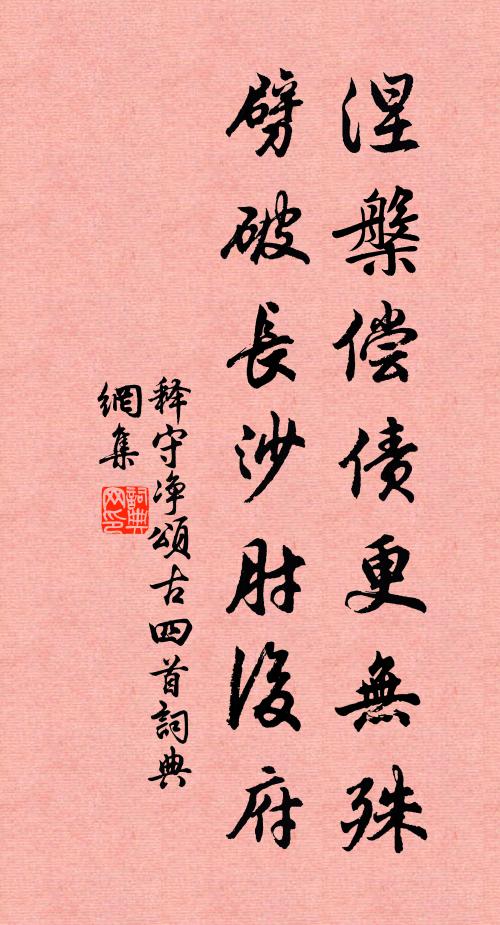 涅槃偿债更無殊
劈破長沙肘後府
释守净頌古四首詞典
網集
詞典网印